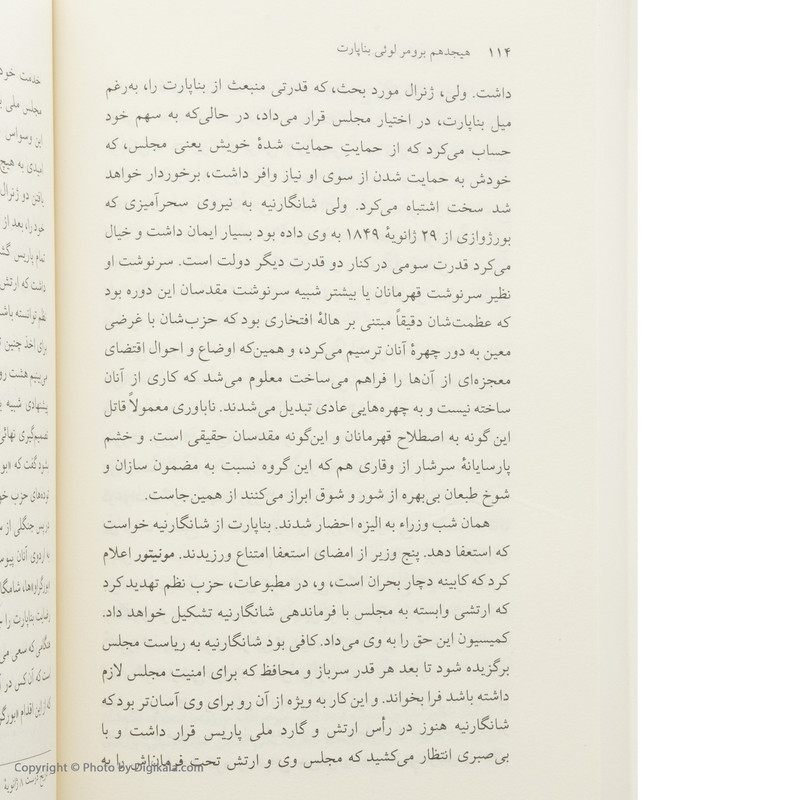 ۱۱۴ هیجدهم برومر لوئی بناپارت
داشت. ولی، ژنرال مورد بحث، که قدرتی منبعث از بناپارت را، به‌رغم
میل بناپارت، در اختیار مجلس قرار می‌داد، در حالی‌که به سهم خود
حساب می‌کرد که از حمایتِ حمایت شدهٔ خویش یعنی مجلس، که
خودش به حمایت شدن از سوی او نیاز وافر داشت، برخوردار خواهد
شد سخت اشتباه می‌کرد. ولی شانگارنیه به نیروی سحرآمیزی که
بورژوازی از ۲۹ ژانویهٔ ۱۸۴۹ به وی داده بود بسیار ایمان داشت و خیال
می‌کرد قدرت سومی در کنار دو قدرت دیگر دولت است. سرنوشت او
نظیر سرنوشت قهرمانان یا بیشتر شبیه سرنوشت مقدسان این دوره بود
که عظمت‌شان دقیقاً مبتنی بر هالهٔ افتخاری بود که حزب‌شان با غرضی
معین به دور چهرهٔ آنان ترسیم می‌کرد، و همین‌که اوضاع و احوال اقتضای
معجزه‌ای از آن‌ها را فراهم می‌ساخت معلوم می‌شد که کاری از آنان
ساخته نیست و به چهره‌هایی عادی تبدیل می‌شدند. ناباوری معمولاً قاتل
این گونه به اصطلاح قهرمانان و این‌گونه مقدسان حقیقی است. و خشم
پارسایانهٔ سرشار از وقاری هم که این گروه نسبت به مضمون سازان و
شوخ طبعان بی‌بهره از شور و شوق ابراز می‌کنند از همین‌جاست.
همان شب وزراء به الیزه احضار شدند. بناپارت از شانگارنیه خواست
که استعفا دهد. پنج وزیر از امضای استعفا امتناع ورزیدند. مونیتور اعلام
کرد که کابینه دچار بحران است، و، در مطبوعات، حزب نظم تهدید کرد
که ارتشی وابسته به مجلس با فرماندهی شانگارنیه تشکیل خواهد داد.
کمیسیون این حق را به وی می‌داد. کافی بود شانگارنیه به ریاست مجلس
برگزیده شود تا بعد هر قدر سرباز و محافظ که برای امنیت مجلس لازم
داشته باشد فرا بخواند. و این کار به ویژه از آن رو برای وی آسان‌تر بود که
شانگارنیه هنوز در رأس ارتش و گارد ملی پاریس قرار داشت و با
بی‌صبری انتظار می‌کشید که مجلس وی و ارتش تحت فرمان‌اش را به
Copyright © Photo by Digikala.com